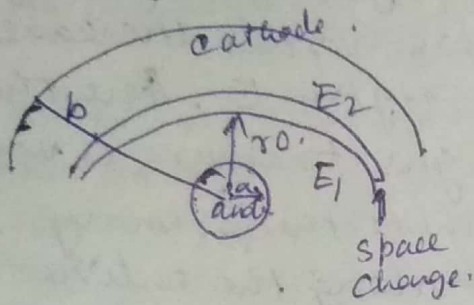 Cathode.
b
E2
r0.
E1
a
and
Space
Charge.